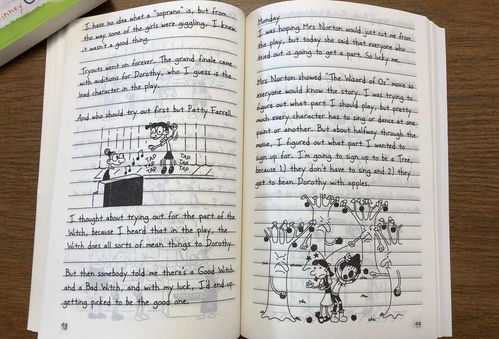 inney
I have no idea what a "soprano" is, but from
the way some of the girls were giggling, I knew
it wasn't a good thing.
Tryouts went on forever. The grand finale came
with auditions for Dorothy, who I guess is the
lead character in the play.
And who should try out first but Patty Farrell.
TAP
TAP
TAP
TAP
TAP
TAP
I thought about trying out for the part of the
Witch, because I heard that in the play, the
Witch does all sorts of mean things to Dorothy.
But then somebody told me there's a Good Witch
and a Bad Witch, and with my luck, I'd end up
getting picked to be the good one.
98
Monday
I was hoping Mrs Norton would just cut me from
the play, but today she said that everyone who
tried out is going to get a part. So lucky me.
Mrs Norton showed "The Wizard of Oz" movie so
everyone would know the story. I was trying to
figure out what part I should play, but pretty
much every character has to sing or dance at one
point or another. But about halfway through the
movie, I figured out what part I wanted to
sign up for. I'm going to sign up to be a Tree,
because 1) they don't have to sing and 2) they
get to bean Dorothy with apples.
99